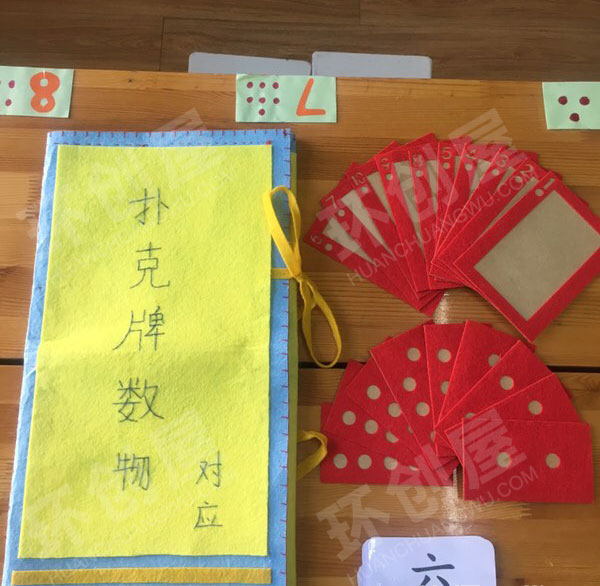 8
7
扑克牌数物
对应
六
环创屋
HUANCHUANGWU.COM
环创屋
HUANCHUANGWU.COM
环创屋
HUANCHUANGWU.COM
环创屋
HUANCHUANGWU.COM